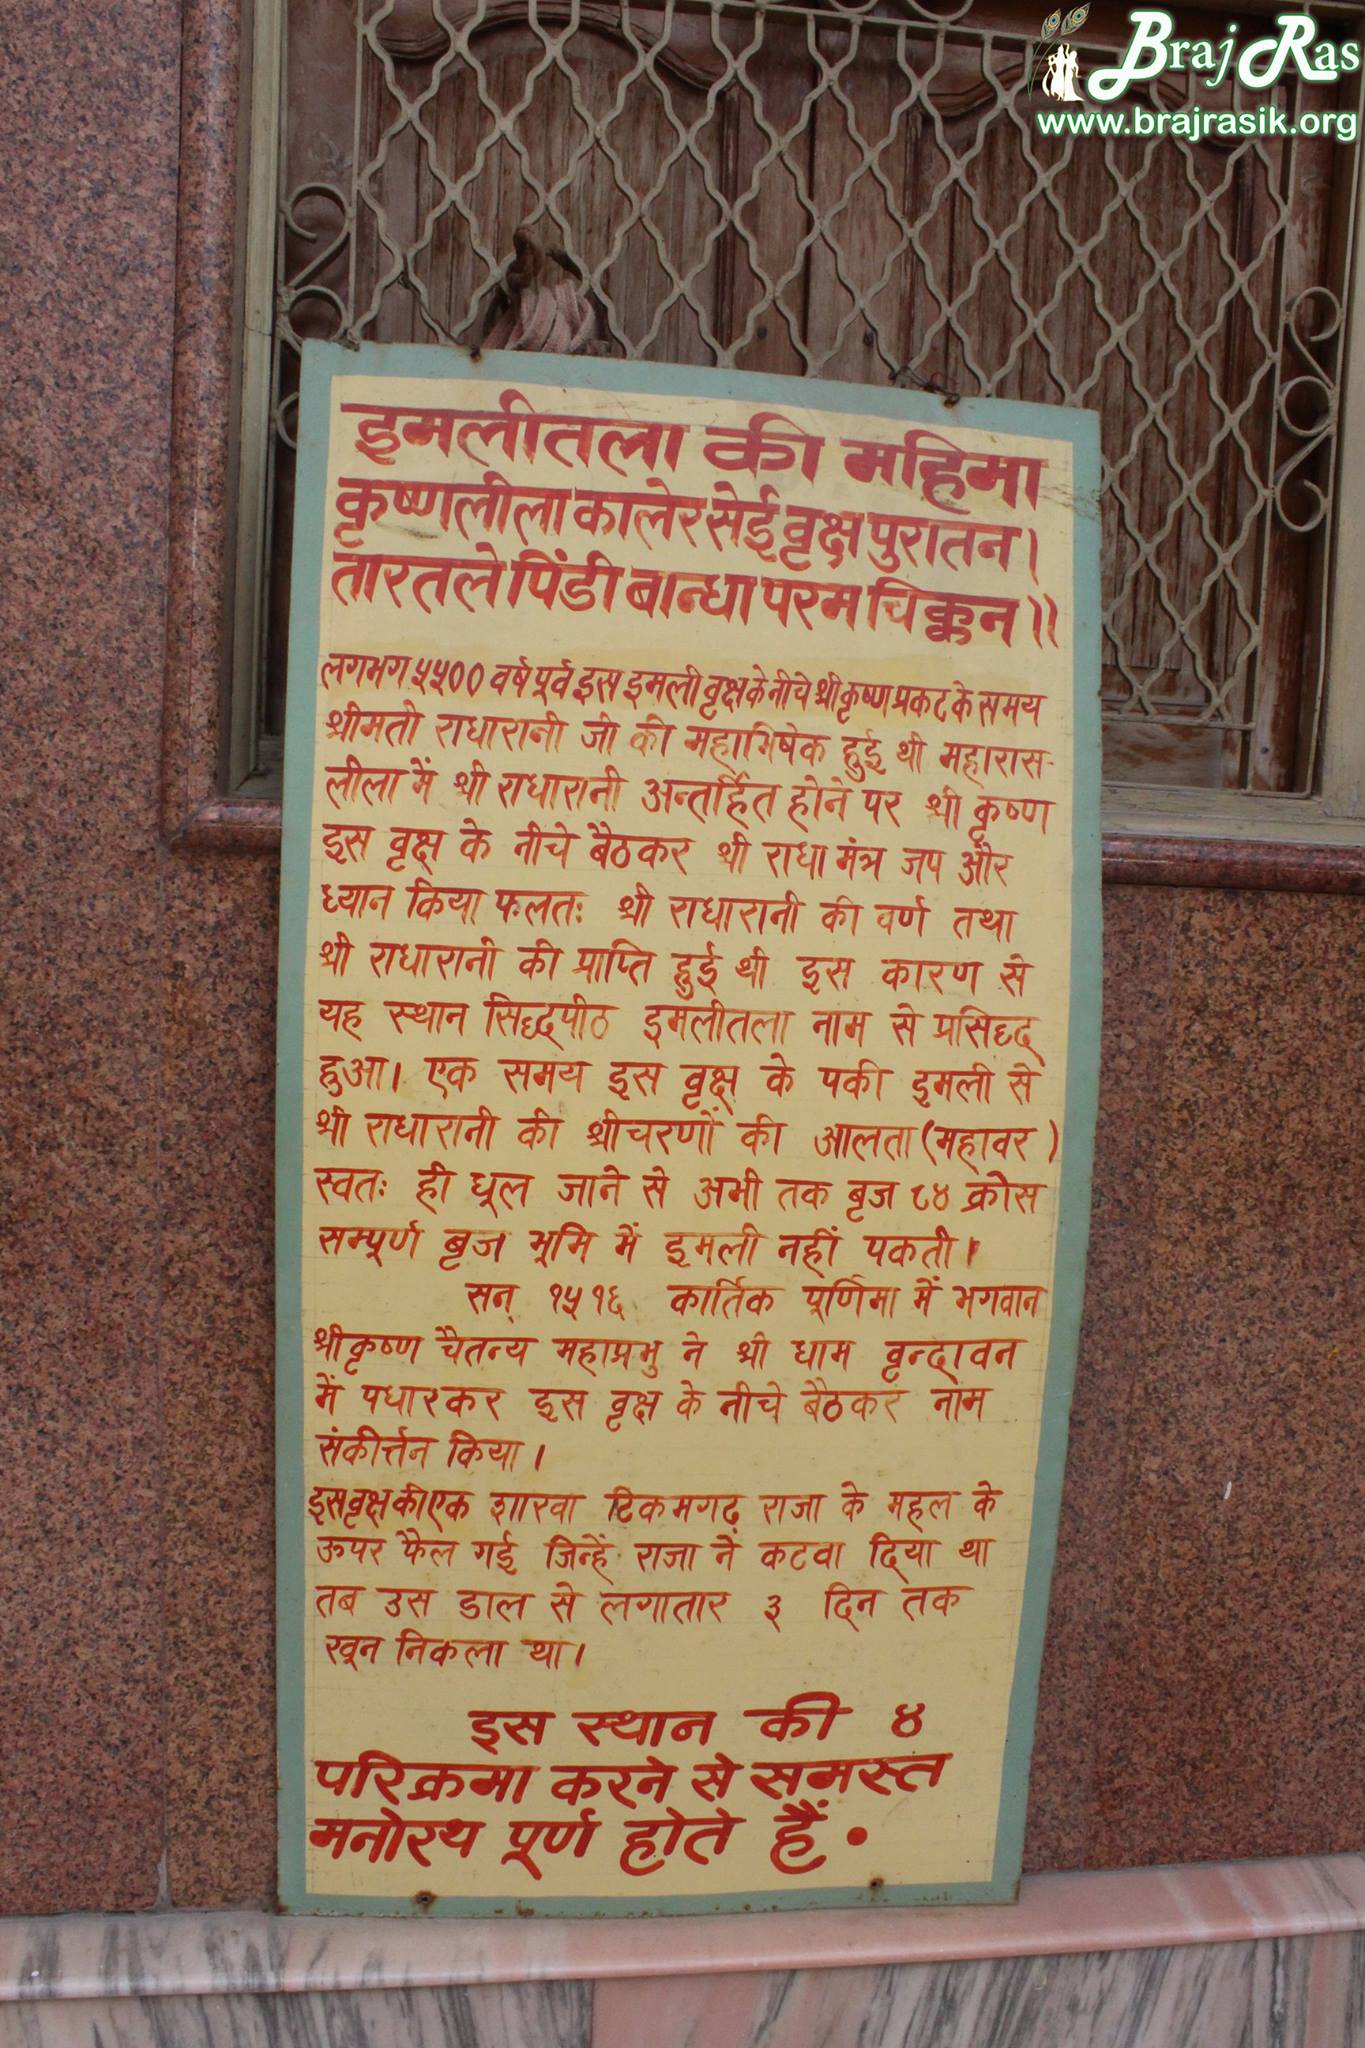 Braj Ras
www.brajrasik.org
इमलीतला की महिमा
कृष्णलीला कालेर सेई वृक्ष पुरातन।
तार तले पिंडी बान्धा परम चिक्कन॥
लगभग ५५०० वर्ष पूर्व इस इमली वृक्ष के नीचे श्रीकृष्ण प्रकट के समय
श्रीमती राधारानी जी की महाभिषेक हुई थी महारास-
लीला में श्री राधारानी अन्तर्हित होने पर श्री कृष्ण
इस वृक्ष के नीचे बैठकर श्री राधा मंत्र जप और
ध्यान किया फलतः श्री राधारानी की वर्ण तथा
श्री राधारानी की प्राप्ति हुई थी इस कारण से
यह स्थान सिद्धपीठ इमलीतला नाम से प्रसिद्ध
हुआ। एक समय इस वृक्ष के पकी इमली से
श्री राधारानी की श्रीचरणों की आलता (महावर)
स्वतः ही धूल जाने से अभी तक बृज ८४ क्रोस
सम्पूर्ण बृज भूमि में इमली नहीं पकती।
सन् १५१६ कार्तिक पूर्णिमा में भगवान
श्रीकृष्ण चैतन्य महाप्रभु ने श्री धाम वृन्दावन
में पधारकर इस वृक्ष के नीचे बैठकर नाम
संकीर्त्तन किया।
इस वृक्ष की एक शाखा टिकमगढ़ राजा के महल के
ऊपर फैल गई जिन्हें राजा ने कटवा दिया था
तब उस डाल से लगातार ३ दिन तक
खून निकला था।
इस स्थान की ४
परिक्रमा करने से समस्त
मनोरथ पूर्ण होते हैं.